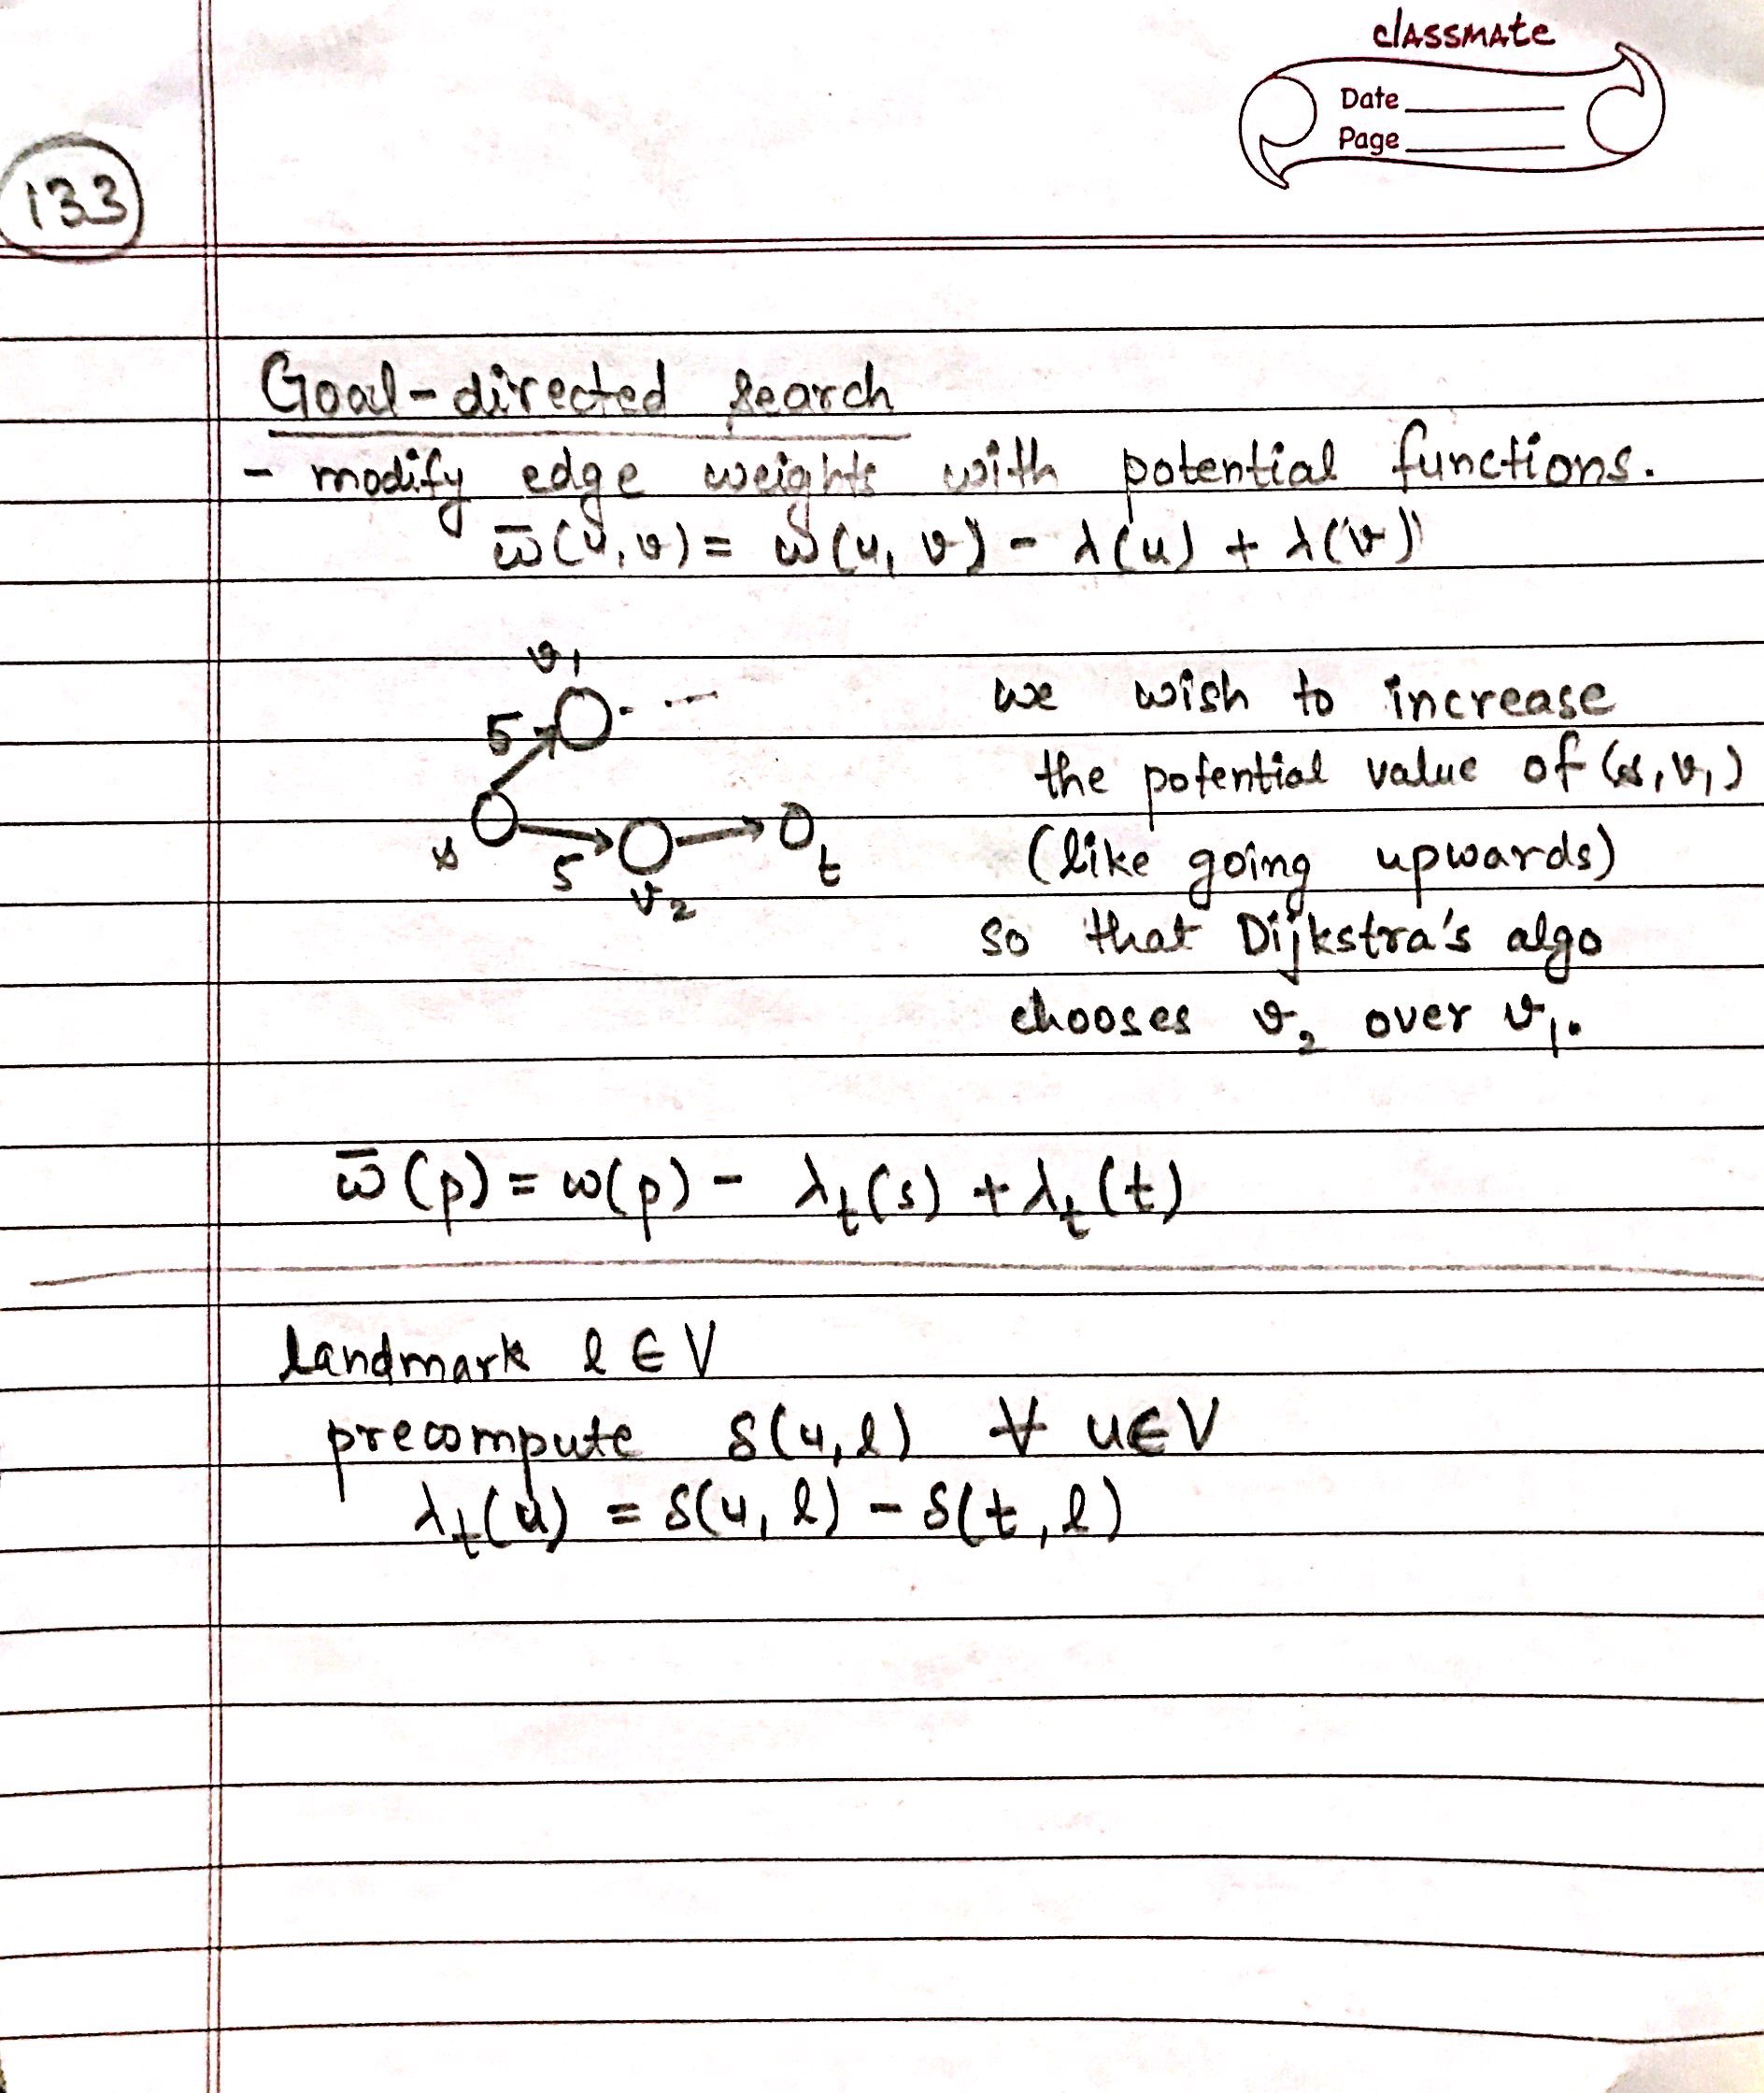 classmate
Date
Page
133
Goal-directed search
- modify edge weights with potential functions.
w̅(u, v) = w(u, v) - λ(u) + λ(v)
v₁
5
s
5
v₂
t
we wish to increase
the potential value of (s, v₁)
(like going upwards)
so that Dijkstra's algo
chooses v₂ over v₁.
w̅(p) = w(p) - λₜ(s) + λₜ(t)
landmark l ∈ V
precompute δ(u, l) ∀ u ∈ V
λₜ(u) = δ(u, l) - δ(t, l)